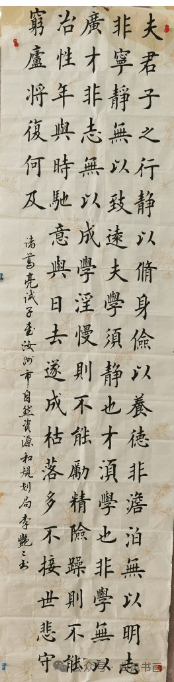 夫君子之行静以脩身儉以養德非澹泊無以明志
非寧靜無以致遠夫學須靜也才須學也非學無以
廣才非志無以成學淫慢則不能勵精險躁則不能
冶性年與時馳意與日去遂成枯落多不接世悲守
窮廬將復何及
诸葛亮诫子书汝州市自然资源和规划局李艷〻书